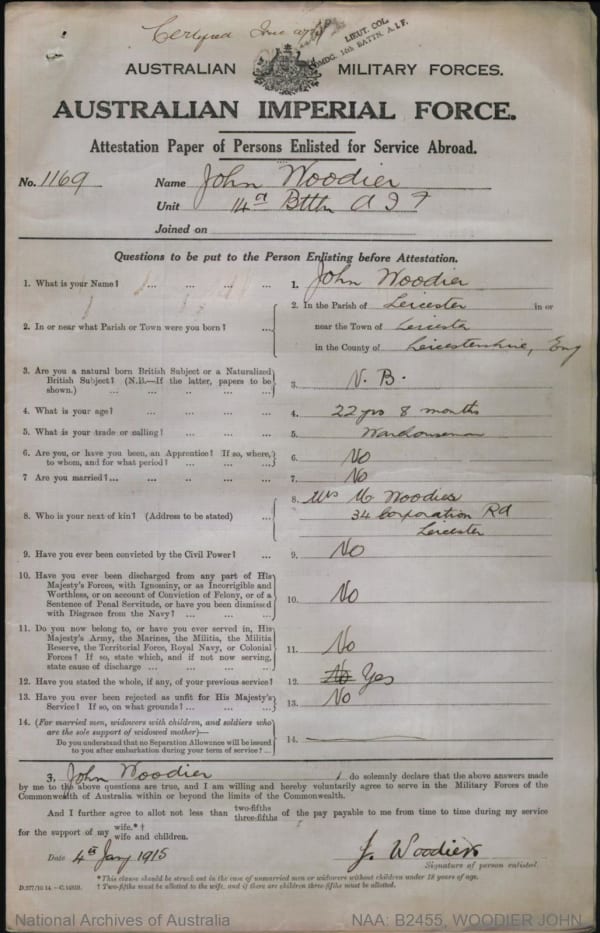 Certified True copy
LIEUT. COL.
COMDG. 14th BATTN. A.I.F.
AUSTRALIAN MILITARY FORCES.
AUSTRALIAN IMPERIAL FORCE.
Attestation Paper of Persons Enlisted for Service Abroad.
No. 1169 Name John Woodier
Unit 14th Bttln A I F
Joined on
Questions to be put to the Person Enlisting before Attestation.
1. What is your Name? ... ... ... ... 1. John Woodier
2. In or near what Parish or Town were you born? ... 2. In the Parish of Leicester in or
near the Town of Leicester
in the County of Leicestershire, Eng
3. Are you a natural born British Subject or a Naturalized
British Subject? (N.B.—If the latter, papers to be
shown.) ... ... ... ... 3. N. B.
4. What is your age? ... ... ... ... 4. 22 yrs 8 months
5. What is your trade or calling? ... ... ... 5. Warehouseman
6. Are you, or have you been, an Apprentice? If so, where,
to whom, and for what period? ... ... ... 6. No
7 Are you married?... ... .. ... ... 7. No
8. Who is your next of kin? (Address to be stated) ... 8. Mrs M Woodier
34 Corporation Rd
Leicester
9. Have you ever been convicted by the Civil Power? ... 9. No
10. Have you ever been discharged from any part of His
Majesty's Forces, with Ignominy, or as Incorrigible and
Worthless, or on account of Conviction of Felony, or of a
Sentence of Penal Servitude, or have you been dismissed
with Disgrace from the Navy? ... ... ... 10. No
11. Do you now belong to, or have you ever served in, His
Majesty's Army, the Marines, the Militia, the Militia
Reserve, the Territorial Force, Royal Navy, or Colonial
Forces? If so, state which, and if not now serving,
state cause of discharge ... ... ... ... 11. No
12. Have you stated the whole, if any, of your previous service? 12. No Yes
13. Have you ever been rejected as unfit for His Majesty's
Service? If so, on what grounds? ... ... ... 13. No
14. (For married men, widowers with children, and soldiers who
are the sole support of widowed mother)—
Do you understand that no Separation Allowance will be issued
to you after embarkation during your term of service? ... 14.
3. John Woodier do solemnly declare that the above answers made
by me to the above questions are true, and I am willing and hereby voluntarily agree to serve in the Military Forces of the
Commonwealth of Australia within or beyond the limits of the Commonwealth.
And I further agree to allot not less than two-fifths three-fifths of the pay payable to me from time to time during my service
for the support of my wife.*† wife and children.
Date 4th Jany 1915 J. Woodier
Signature of person enlisted.
* This clause should be struck out in the case of unmarried men or widowers without children under 18 years of age.
† Two-fifths must be allotted to the wife, and if there are children three-fifths must be allotted.
D.277/10.14.—C.14838.
National Archives of Australia NAA: B2455, WOODIER JOHN